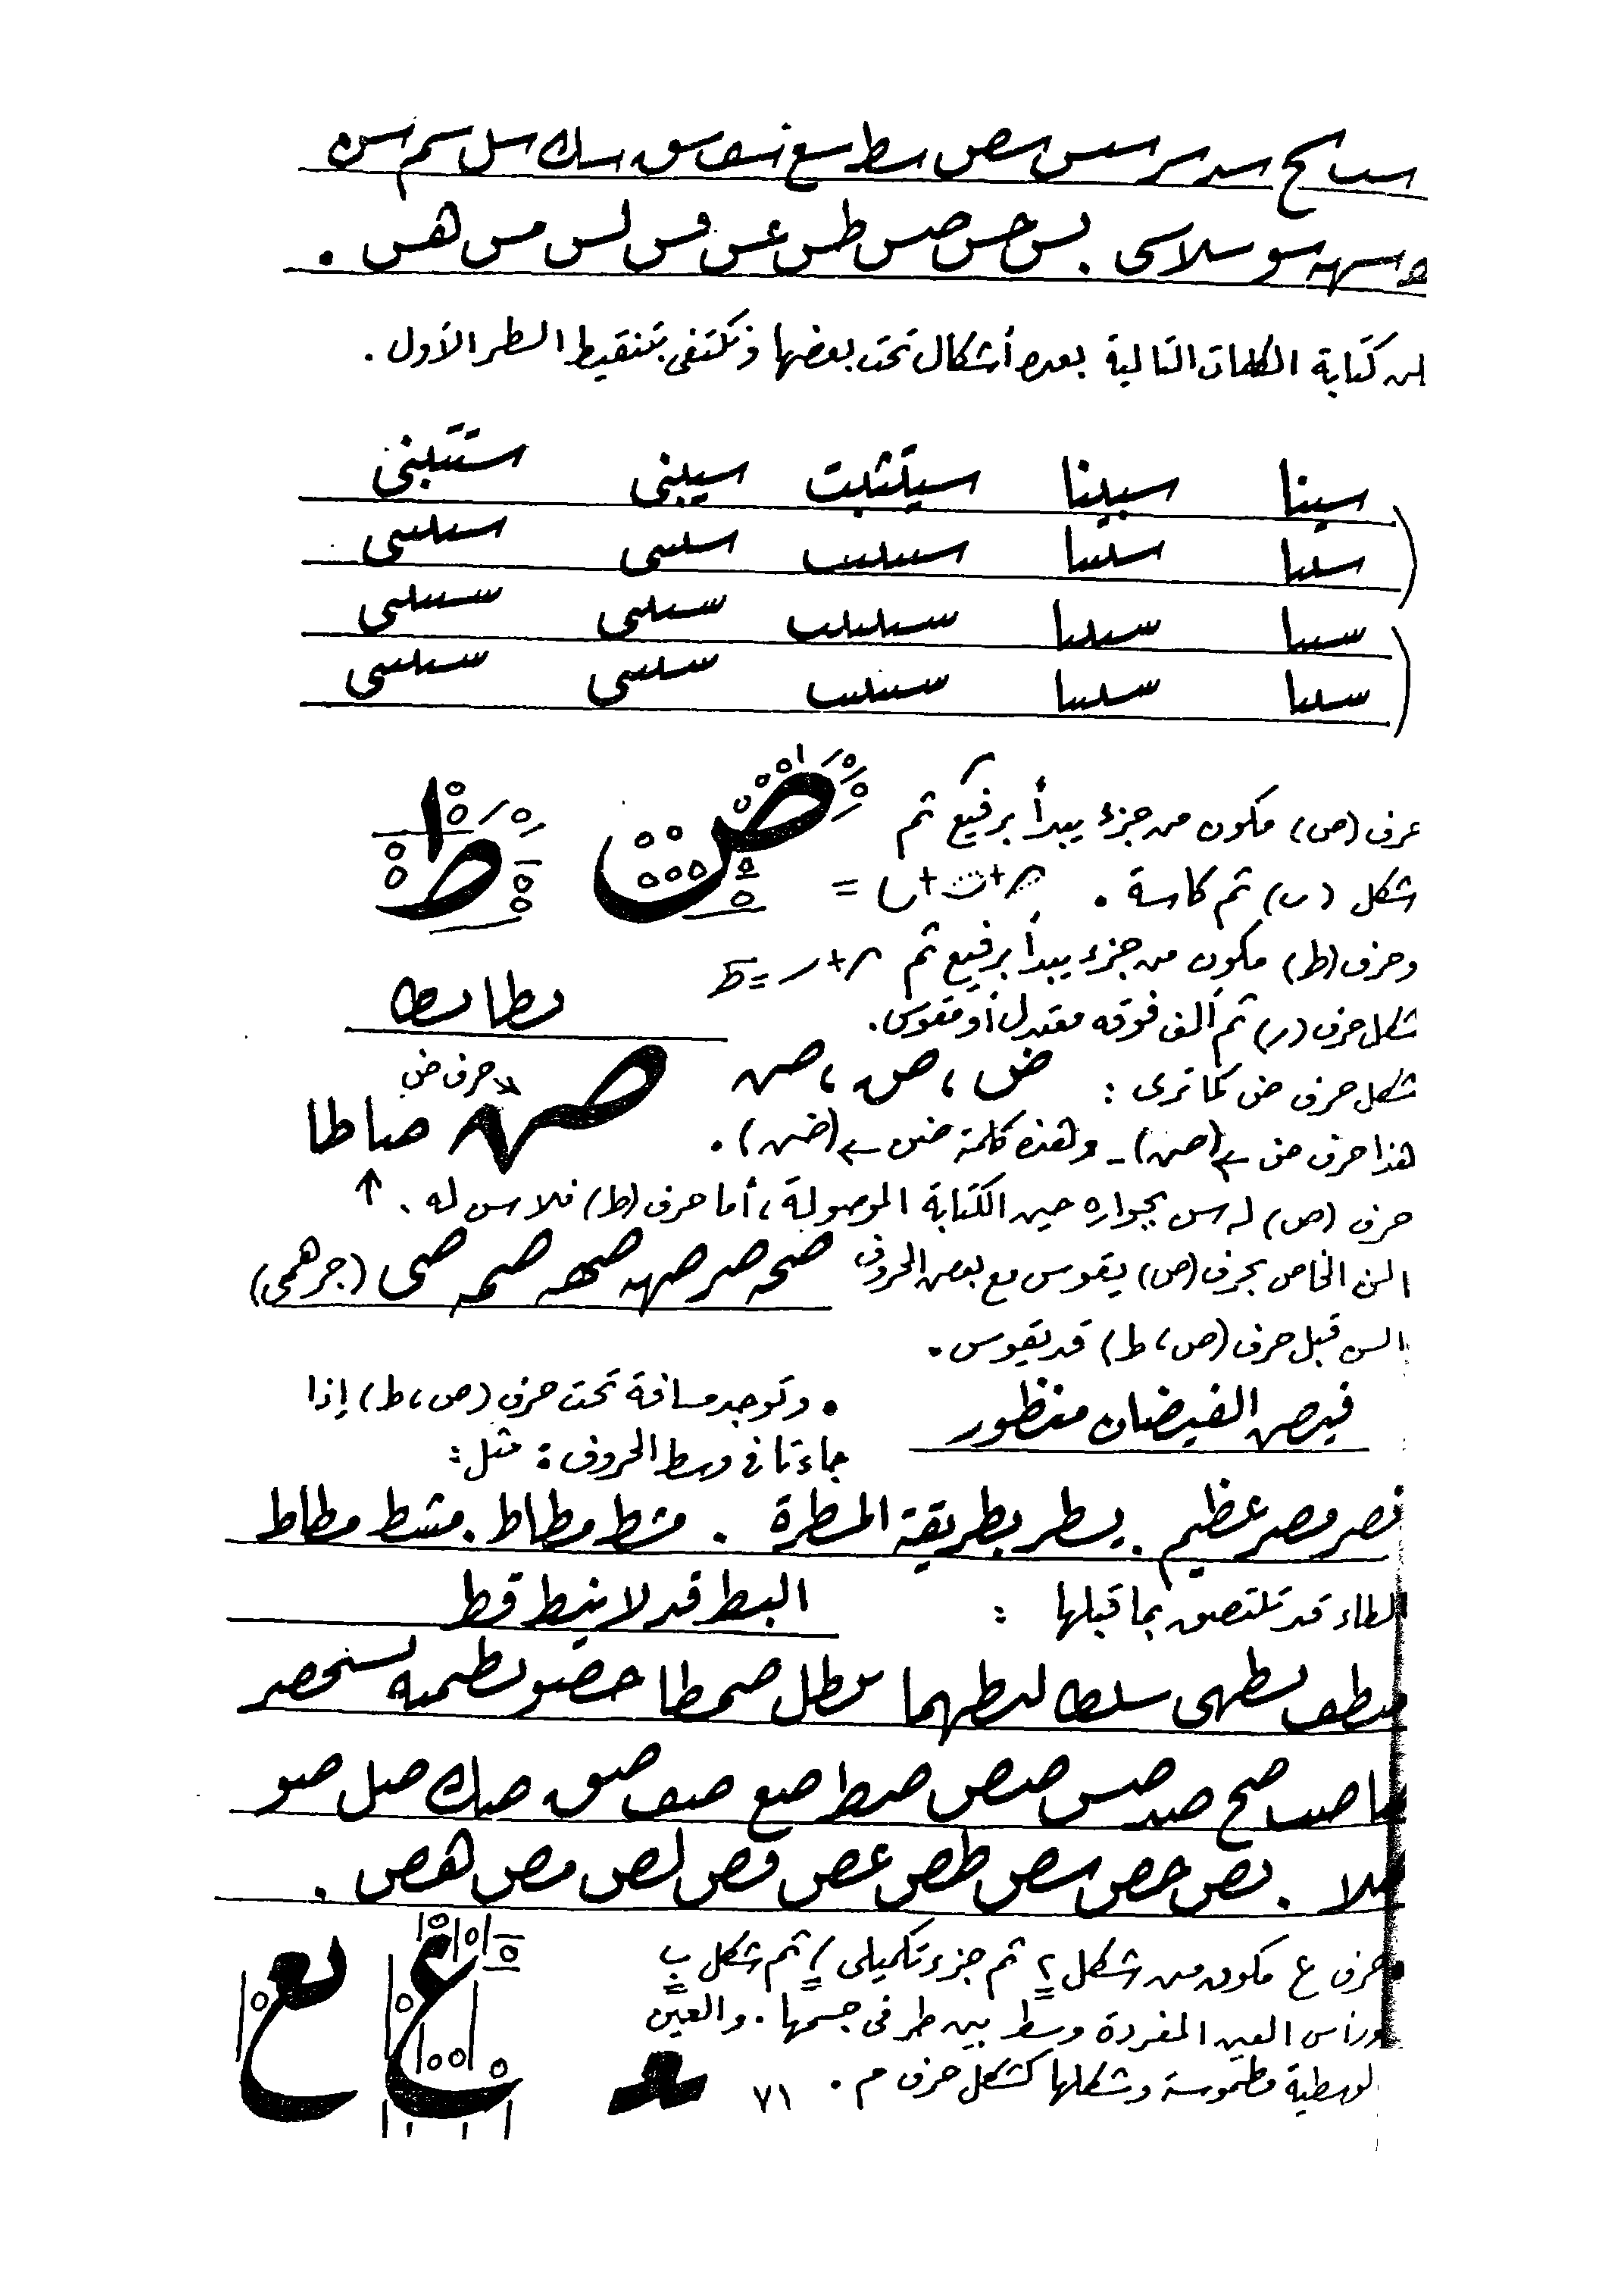 سب سح سد سر سس سص سط سع سف سق سك سل سم سن
سهه سو سلا سى . بس حس صس طس عس فس لس مس هس .
كتابة الكلمات التالية بعدة أشكال تحت بعضها ونكتفى بتنقيط السطر الأول .
سينا سبينا سيتثبت سيبنى ستتبنى
سىىا سىىىا سىىىىٮ سىىى سىىىىى
سىىا سىىىا سىىىىٮ سىىى سىىىىى
سىىا سىىىا سىىىىٮ سىىى سىىىىى
حرف (ص) مكون من جزء يبدأ برفيع ثم ص ط
شكل (ں) ثم كاسة . =
وحرف (ط) مكون من جزء يبدأ برفيع ثم = ط
شكل حرف (ر) ثم ألف فوقه معتدل أو مقوس .
شكل حرف ض كما ترى : ض ، ص ، ص حرف ض
هذا حرف ض ← (ص) - وهذه كلمة ضں ← (ضں) . صاطا
حرف (ص) له سن بجواره حين الكتابة الموصولة ، أما حرف (ط) فلا سن له . ↑
السن الخاص بحرف (ص) يقوس مع بعض الحروف صحه صر صهه صمه صى (جرهمى)
السن قبل حرف (ص ، ط) قد يقوس .
فيص الفيضان منظور • وتوجد مسافة تحت حرف (ص ، ط) إذا
جاءتا فى وسط الحروف : مثل :
نصر مصر عظيم . يسطر بطريقة المسطرة . مشط مطاط . مشط مطاط
الطاء قد تلتصق بما قبلها : البط قد لا ينط قط
صا صب صح صد صس صص صط صع صف صق صك صل صو
صلا . بص حص سص طص عص فص لص مص هص .
حرف ع مكون من شكل ء ثم جزء تكميلى / ثم شكل ب ع بع
ورأس العين المفردة وسط بين طرفى جسمها . والعين
الوسطية مطموسة وشكلها كشكل حرف م . ٧١